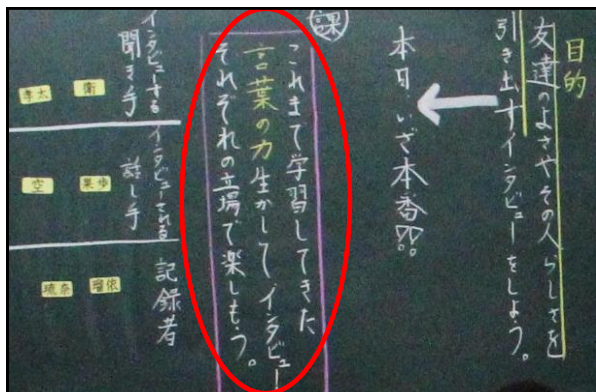 目的
友達のよさやその人らしさを
引き出すインタビューをしよう。
本日、いざ本番!!
課
これまで学習してきた
言葉の力生かしてインタビュー
それぞれの立場で楽しもう。
インタビューする
聞き手
衛
孝太
インタビューされる
話し手
果歩
空
記録者
瑠依
琉奈